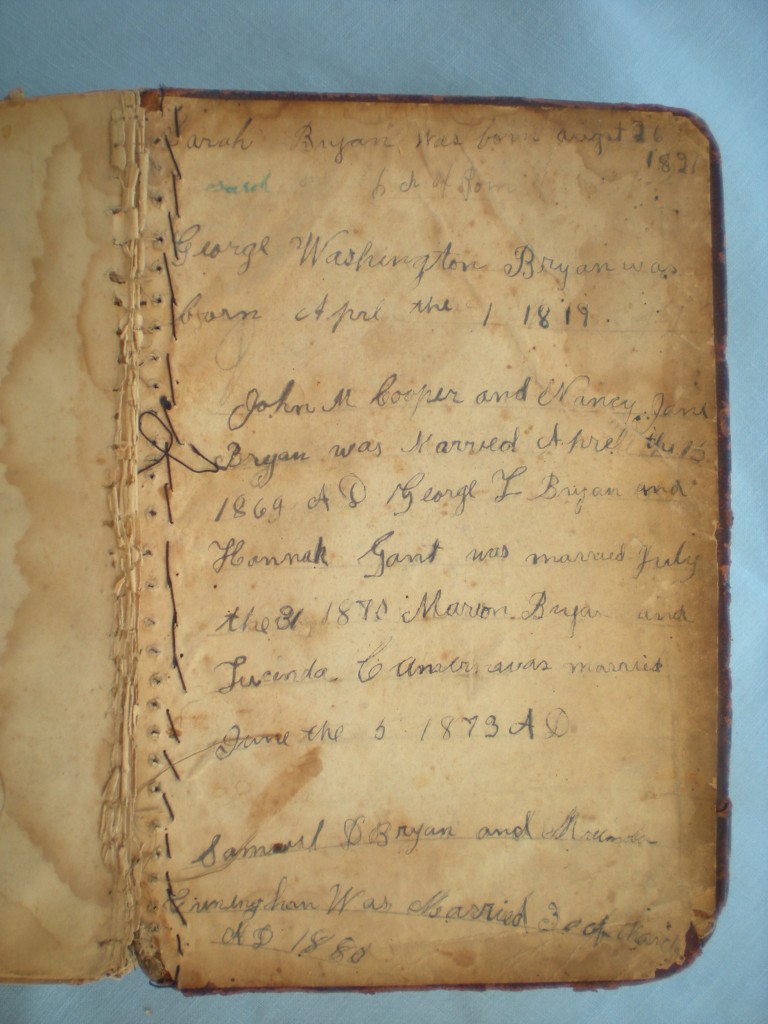 Sarah Bryan was born augst 26
1821
Sarah
George Washington Bryan was
born Aprl the 1 1819
John M Cooper and Nancy Jane
Bryan was Marred Aprel the 15
1869 A D George L Bryan and
Hannah Gant was married July
the 31 1870 Marion Bryan and
Lucinda was married
June the 5 1873 A D
Samuel D Bryan and
Was Married 30 of March
A D 1880